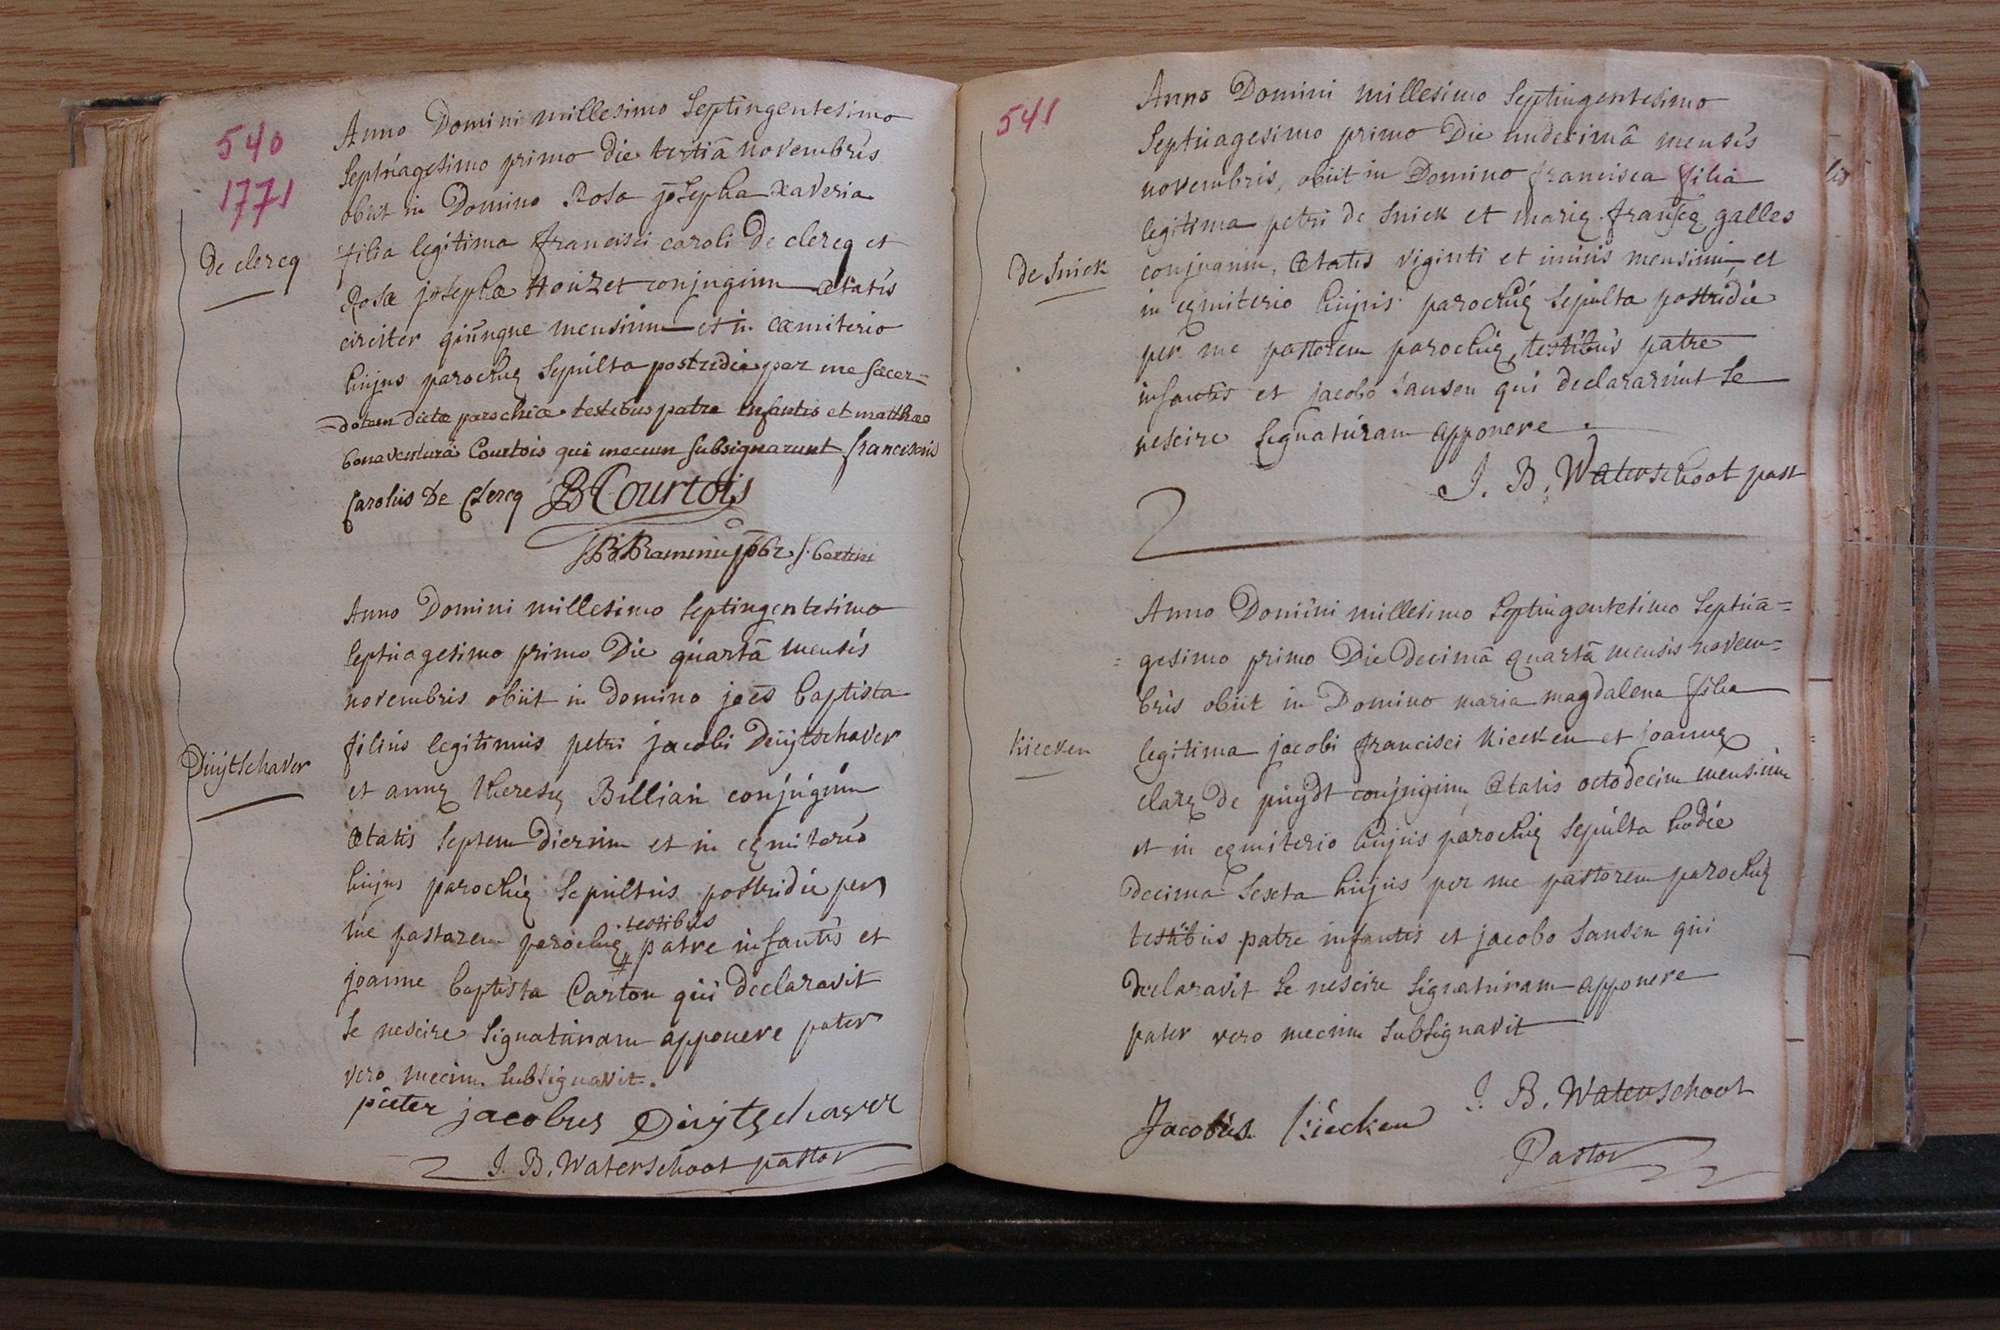 540
1771
Anno Domini millesimo Septingentesimo
Septuagesimo primo die tertiâ novembris
obiit in Domino Rosa josepha xaveria
de clercq
filia legitima francisci caroli de clercq et
Rosæ josephæ Houzet conjugum ætatis
circiter quinque mensium et in cæmiterio
hujus parochiæ Sepulta postridie per me Sacer=
=dotem dictæ parochiæ testibus patre infantis et matthæo
bonaventurâ Courtois qui mecum subsignarunt franciscus
Carolus De Clercq B Courtois
S. bertini
Anno Domini millesimo Septingentesimo
Septuagesimo primo Die quartâ mensis
novembris obiit in Domino joẽs baptista
Duÿtschaver
filius legitimus petri jacobi Duÿtschaver
et annæ theresiæ Billiau conjugum
ætatis septem dierum et in cæmiterio
hujus parochiæ sepultus postridie per
testibus
me pastorem parochiæ patre infantis et
joanne baptista Carton qui declaravit
se nescire signaturam apponere pater
vero mecum subsignavit.
pieter jacobus Duÿtschaver
J. B. Waterschoot pastor
541
Anno Domini millesimo Septingentesimo
Septuagesimo primo Die undecimâ mensis
novembris, obiit in Domino francisca filia
legitima petri de Snick et mariæ franscæ galles
de Snick
conjugum, ætatis viginti et unius mensium, et
in cæmiterio hujus parochiæ sepulta postridie
per me pastorem parochiæ, testibus patre
infantis et jacobo Sansen qui declararunt se
nescire signaturam apponere.
J. B. Waterschoot past
Anno Domini millesimo Septingentesimo Septua=
=gesimo primo Die decimâ quartâ mensis novem=
bris obiit in Domino maria magdalena filia
kiecken
legitima jacobi francisci kiecken et joannæ
claræ De puÿdt conjugum, ætatis octodecim mensium
et in cæmiterio hujus parochiæ sepulta hodie
decima sexta hujus per me pastorem parochiæ
testibus patre infantis et jacobo Sansen qui
declaravit se nescire signaturam apponere
pater vero mecum subsignavit
J. B. Waterschoot
Jacobus kiecken
Pastor